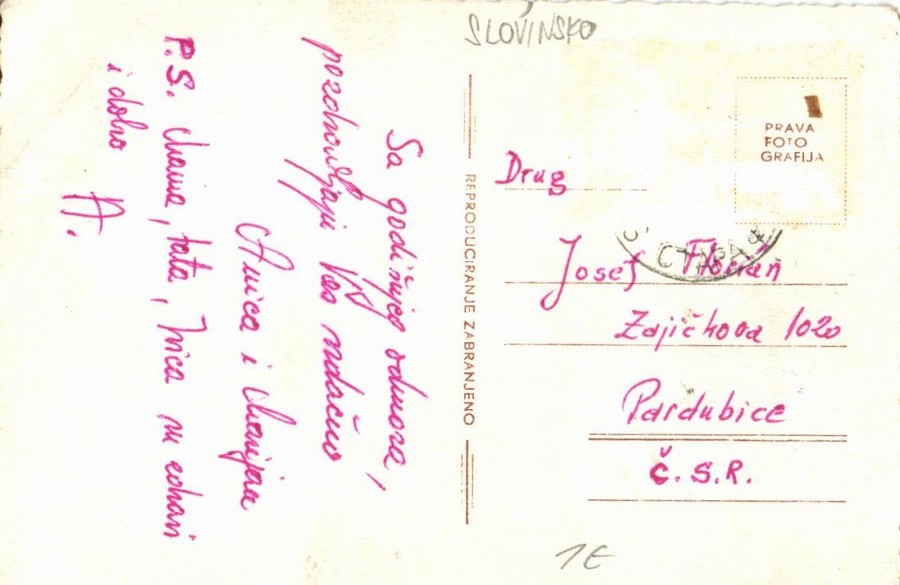 SLOVINSKO
Sa godišnjeg odmora,
pozdravljaju Vas srdačno
Anica i Marijan
P.S. Mama, tata, Ivica su zdravi
i dobro
A.
REPRODUCIRANJE ZABRANJENO
PRAVA
FOTO
GRAFIJA
Drug
Josef Florian
Zajičkova 1020
Pardubice
Č.S.R.
1E